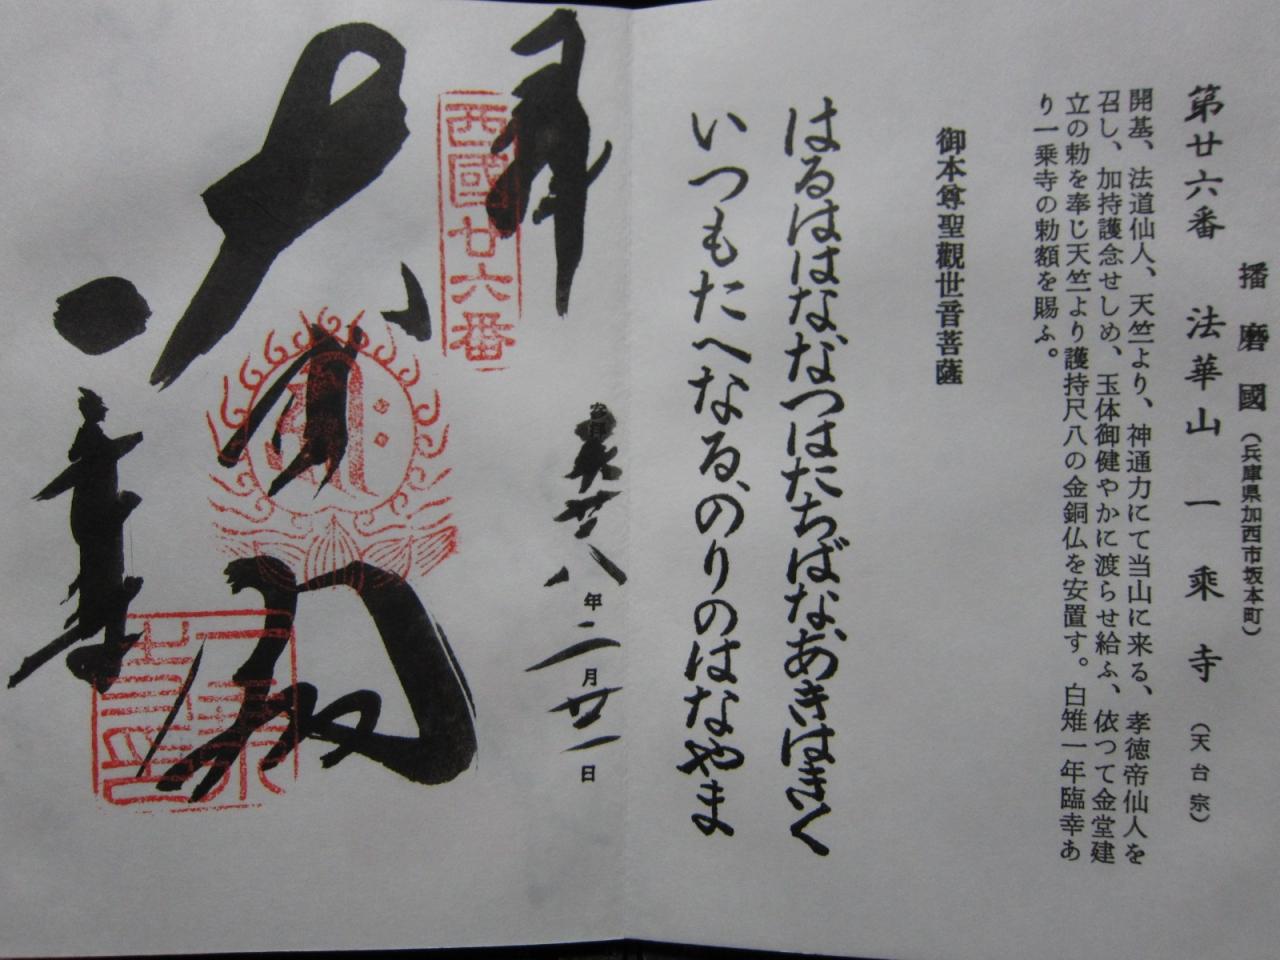 播磨國（兵庫県加西市坂本町）
第廿六番 法華山 一乘寺（天台宗）
開基、法道仙人、天竺より、神通力にて当山に来る、孝徳帝仙人を
召し、加持護念せしめ、玉体御健やかに渡らせ給ふ、依つて金堂建
立の勅を奉じ天竺より護持尺八の金銅仏を安置す。白雉一年臨幸あ
り一乗寺の勅額を賜ふ。
御本尊聖觀世音菩薩
はるははなゝなつはたちばなゝあきはきく
いつもたへなるゝのりのはなやま
奉拝
西國廿六番
廿八年二月廿一日
大悲閣
一乗寺